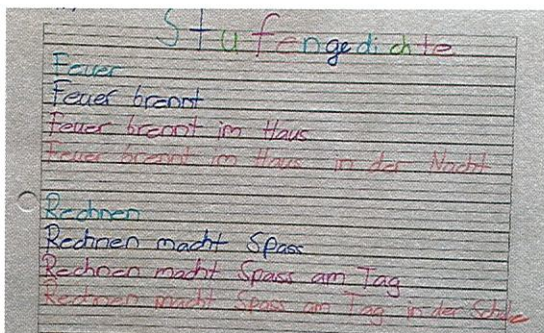 Stufengedichte
Feuer
Feuer brennt
Feuer brennt im Haus
Feuer brennt im Haus in der Nacht
Rechnen
Rechnen macht Spass
Rechnen macht Spass am Tag
Rechnen macht Spass am Tag in der Schule